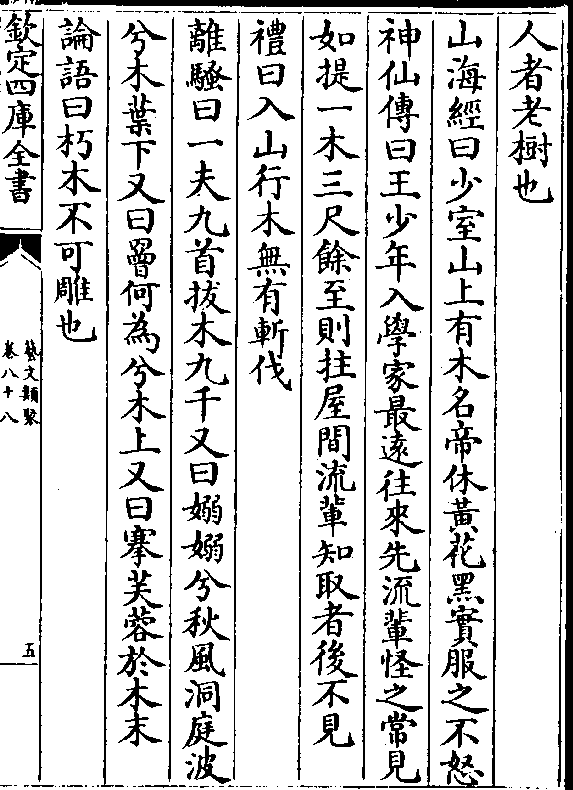 人者老樹也
山海經曰少室山上有木名帝休黃花黑實服之不怒
神仙傳曰王少年入學家最遠往來先流輩怪之常見
如提一木三尺餘至則拄屋間流輩知取者後不見
禮曰入山行木無有斬伐
離騷曰一夫九首拔木九千又曰嫋嫋兮秋風洞庭波
兮木葉下又曰罾何為兮木上又曰搴芙蓉於木末
論語曰朽木不可雕也
欽定四庫全書
藝文類聚
卷八十八
五